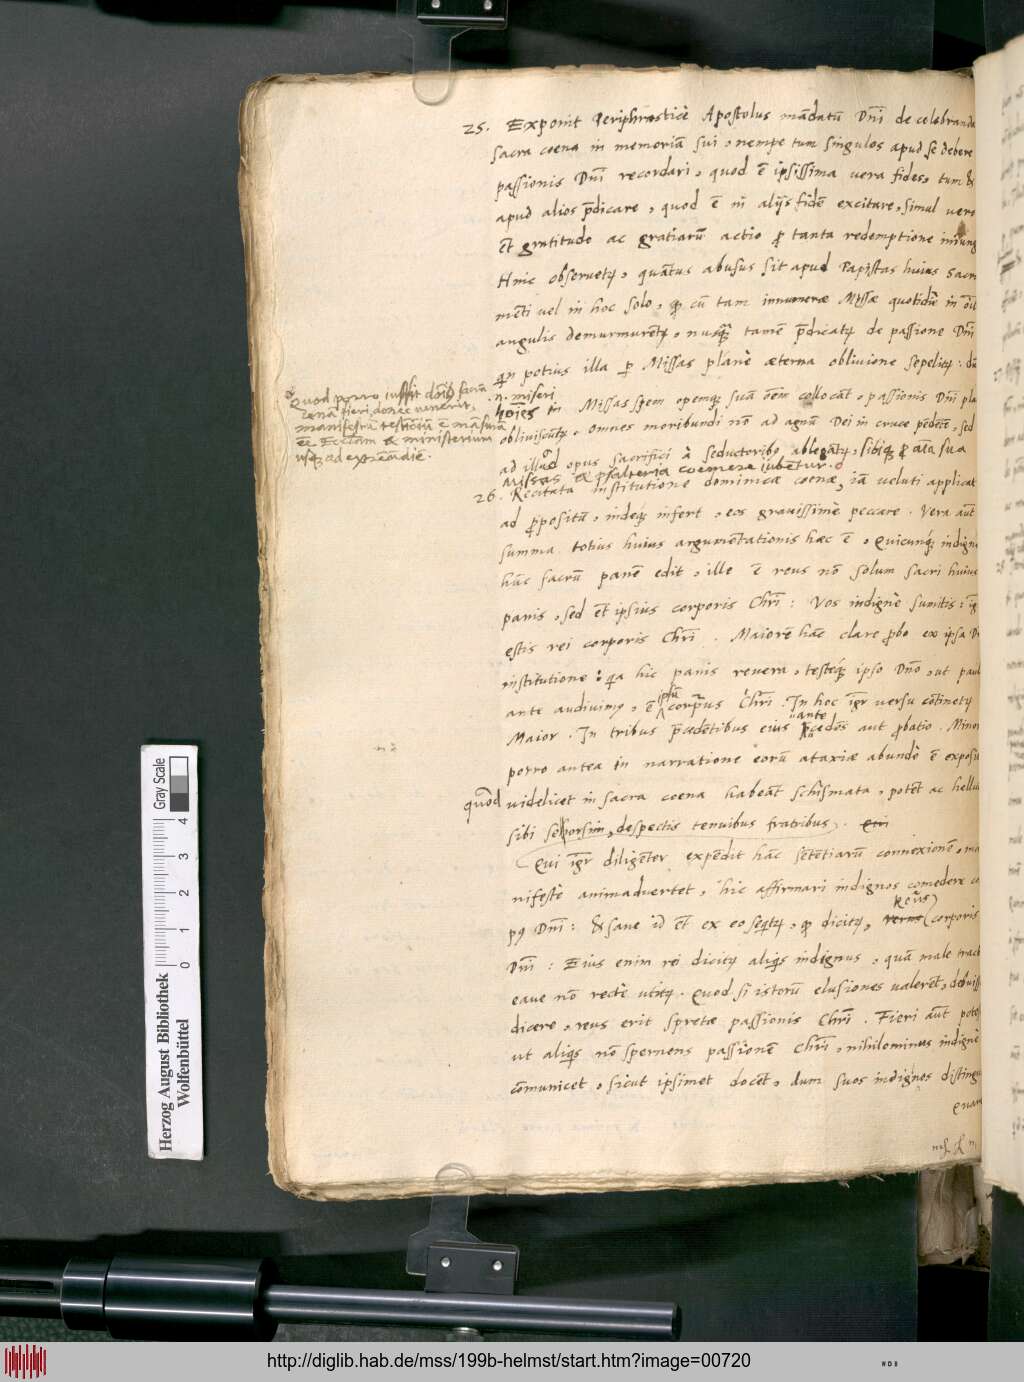 25. Exponit Periphrasticè Apostolus mādatū Dn̄i de celebranda
sacra coena in memoriā sui, nempe tum singulos apud se debere
passionis Dn̄i recordari, quod ē ipsissima vera fides, tum &
apud alios p̄dicare, quod ē in alijs fidē excitare, simul vero
ēt gratitudo ac gratiarū actio ꝓ tanta redemptione
Hinc obseruetʳ, quātus abusus sit apud Papistas huius sacra
mēti vel in hoc solo, qꝫ cū tam innumeræ Missæ quotidiè in
angulis demurmurētʳ, nusquā tamē p̄dicatʳ de passione Dn̄i
potius illa ꝑ Missas planè æterna obliuione sepelitʳ: dū
.n. miseri
hoīes in Missas spem opemqꝫ suā ōem collocāt, passionis Dn̄i
obliviscūtʳ, omnes moribundi nō ad agnū Dei in cruce pēdētē, sed
ad illud opus sacrifici à seductoribꝫ ablegātʳ, sibiqꝫ ꝓ aīa sua
Missas & psalteria coemere iubētur.
Quod porro iussit dīcā sacrā
cenā fieri, donec venerit,
manifestū testīoniū ē māsurā
ēē Ecctam & ministerium
usqꝫ ad extremū diē.
26. Recitata institutione dominicæ coenæ, iā veluti applicat
ad ꝓpositū, indeqꝫ infert, eos grauissimè peccare. Vera aūt
summa totius huius argumētationis hæc ē, Quicunqꝫ indignè
hūc sacrū panē edit, ille ē reus nō solum sacri huius
panis, sed ēt ipsius corporis Chrī: Vos indignè sumitis:
estis rei corporis Chrī. Maiorē hāc clare ꝓbo ex ipsa
institutione: qa hic panis reuera, testeqꝫ ipso Dn̄o, ut
ante audiuimꝫ, ē ipsū corpus Chrī. In hoc igr versu cōtinetʳ
Maior. In tribus p̄cedētibus eius antecedēs aut ꝓbatio. Minor
porro antea in narratione eorū ataxiæ abundè ē
quod videlicet in sacra coena habeāt schismata, potēt ac
sibi seorsim, despectis tenuibus fratribus. Qui
Qui igr diligēter expēdit hāc sētētiarū connexionē,
nifestè animaduertet, hic affirmari indignos comedere
pꝫ Dn̄i: & sane id ēt ex eo seqtʳ, qꝫ dicitʳ, Reus corporis
Dn̄i: Eius enim rei dicitʳ aliqs indignus, quā male
eave nō rectè utitʳ. Quod si istorū elusiones valerēt,
dicere, reus erit spretæ passionis Chrī. Fieri aūt
ut aliqs nō spernens passionē Chrī, nihilominus indignè
cōmunicet, sicut ipsimet docēt, dum suos indignos
Herzog August Bibliothek
Wolfenbüttel
0 1 2 3 4
Gray Scale
http://diglib.hab.de/mss/199b-helmst/start.htm?image=00720